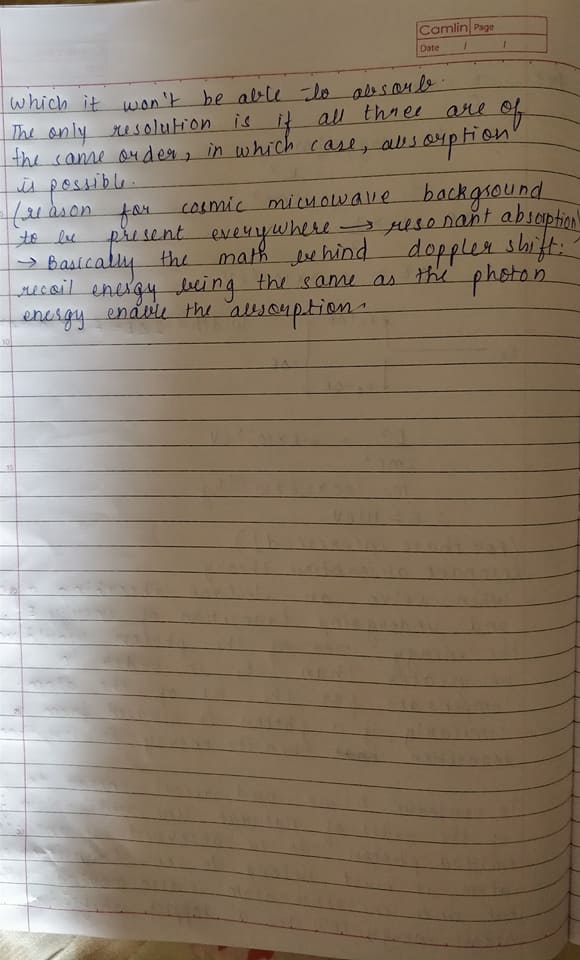 Camlin Page
Date / /
which it won't be able to absorb.
The only resolution is if all three are of
the same order, in which case, absorption
is possible.
(reason for cosmic microwave background
to be present everywhere → resonant absorption)
→ Basically the math behind doppler shift:
recoil energy being the same as the photon
energy enable the absorption.